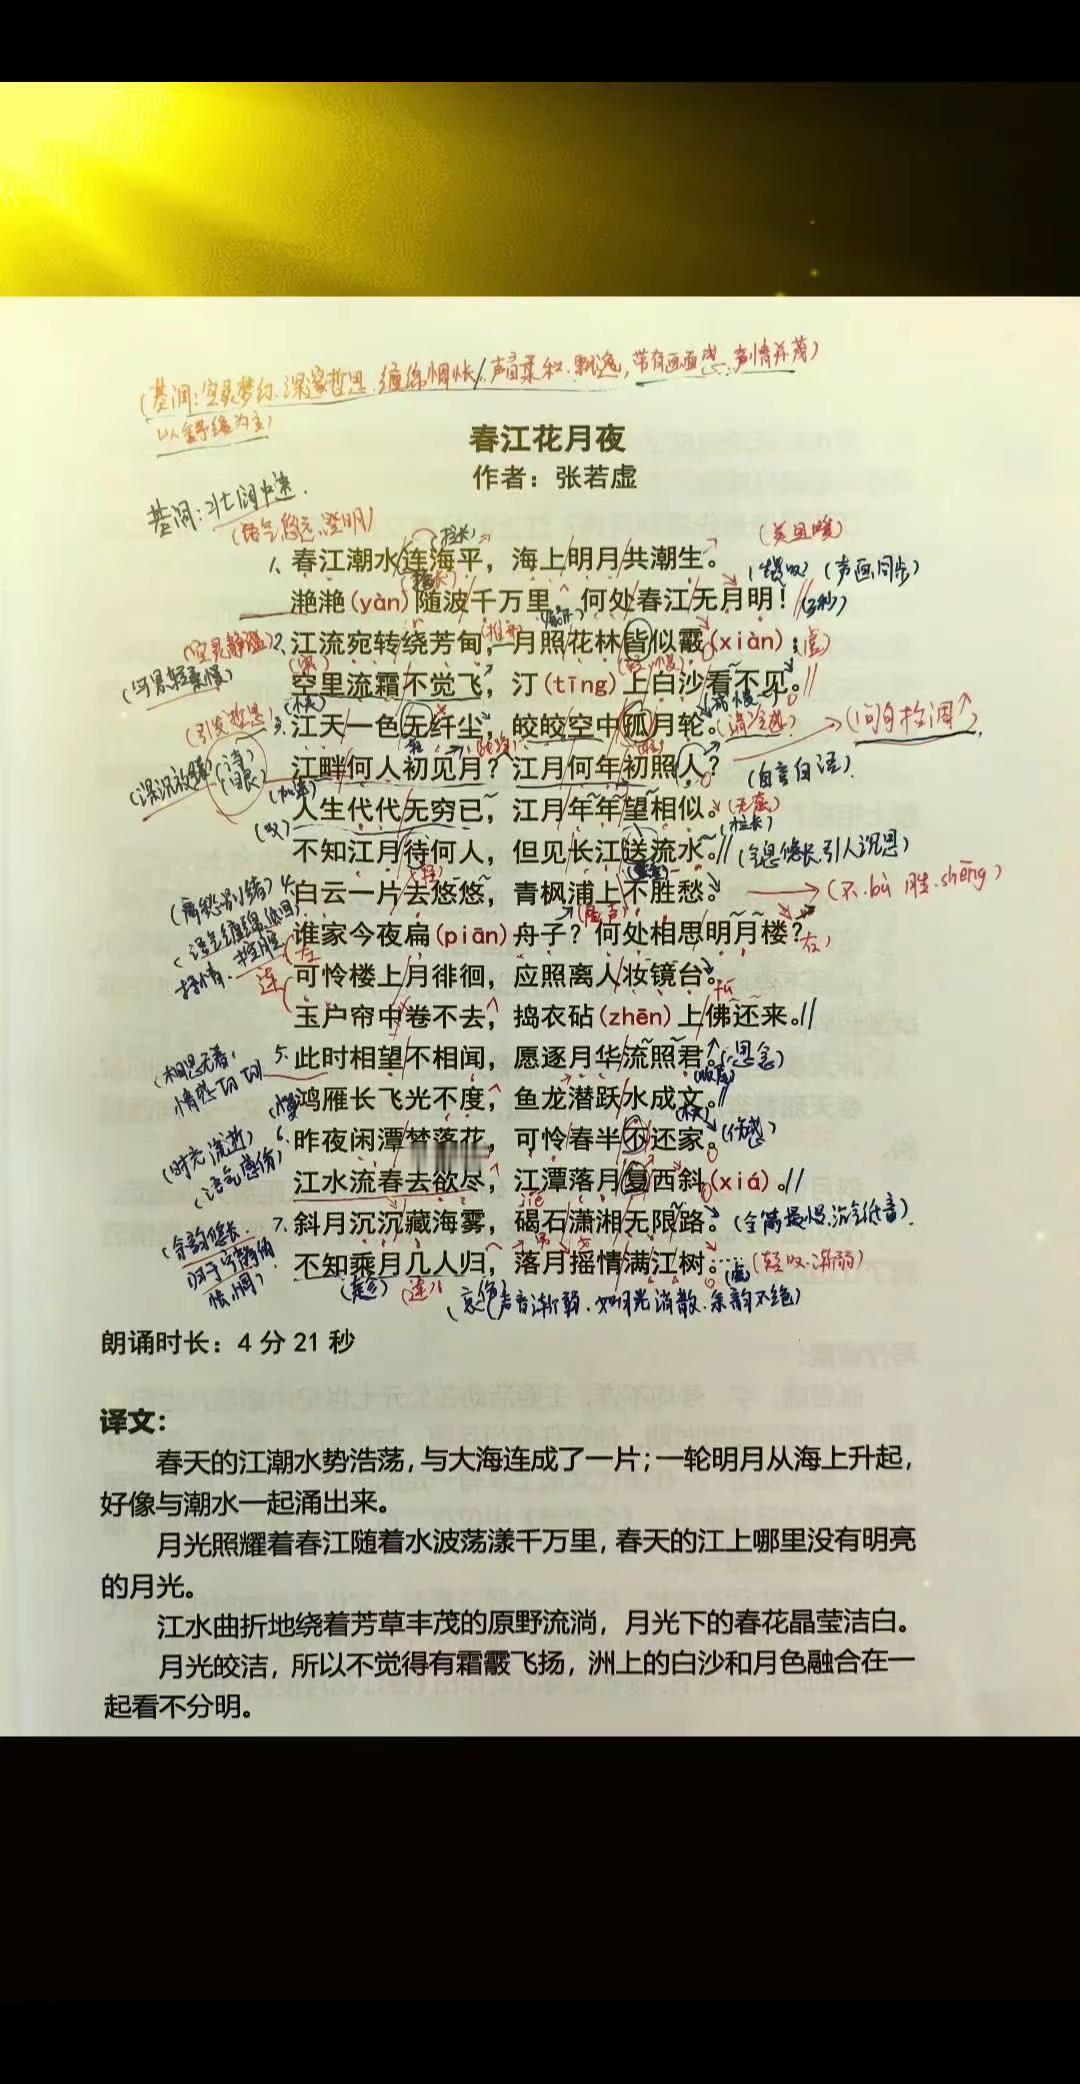 (基调:空灵梦幻.深邃哲思.缠绵惆怅/声音柔和.飘逸,带有画面感.声情并茂)
以舒缓为主)
春江花月夜
作者：张若虚
基调:壮阔中速.
(语气悠远.澄明)
1、春江潮水连海平，海上明月共潮生。
滟滟(yàn)随波千万里，何处春江无月明！
(慢叹) (声画同步)
2、江流宛转绕芳甸，月照花林皆似霰(xiàn)；
(空灵静谧)
空里流霜不觉飞，汀(tīng)上白沙看不见。
3、江天一色无纤尘，皎皎空中孤月轮。
(引发哲思)
江畔何人初见月？江月何年初照人？
(自言自语).
人生代代无穷已，江月年年望相似。
不知江月待何人，但见长江送流水。
(气息悠长,引人沉思)
4、白云一片去悠悠，青枫浦上不胜愁。
(不.bù 胜.shēng)
(离愁别绪)
谁家今夜扁(piān)舟子？何处相思明月楼？
可怜楼上月徘徊，应照离人妆镜台。
玉户帘中卷不去，捣衣砧(zhēn)上拂还来。
5、此时相望不相闻，愿逐月华流照君。
鸿雁长飞光不度，鱼龙潜跃水成文。
6、昨夜闲潭梦落花，可怜春半不还家。
(伤感)
(时光流逝)
(语气感伤)
江水流春去欲尽，江潭落月复西斜(xiá)。
7、斜月沉沉藏海雾，碣石潇湘无限路。
(全篇最慢.沉气低音).
(余韵悠长.
归于宁静的
怅惘)
不知乘月几人归，落月摇情满江树。……
(轻叹.渐弱)
(声音渐弱.如月光消散.余韵不绝)
朗诵时长：4 分 21 秒
译文：
春天的江潮水势浩荡，与大海连成了一片；一轮明月从海上升起，
好像与潮水一起涌出来。
月光照耀着春江随着水波荡漾千万里，春天的江上哪里没有明亮
的月光。
江水曲折地绕着芳草丰茂的原野流淌，月光下的春花晶莹洁白。
月光皎洁，所以不觉得有霜霰飞扬，洲上的白沙和月色融合在一
起看不分明。